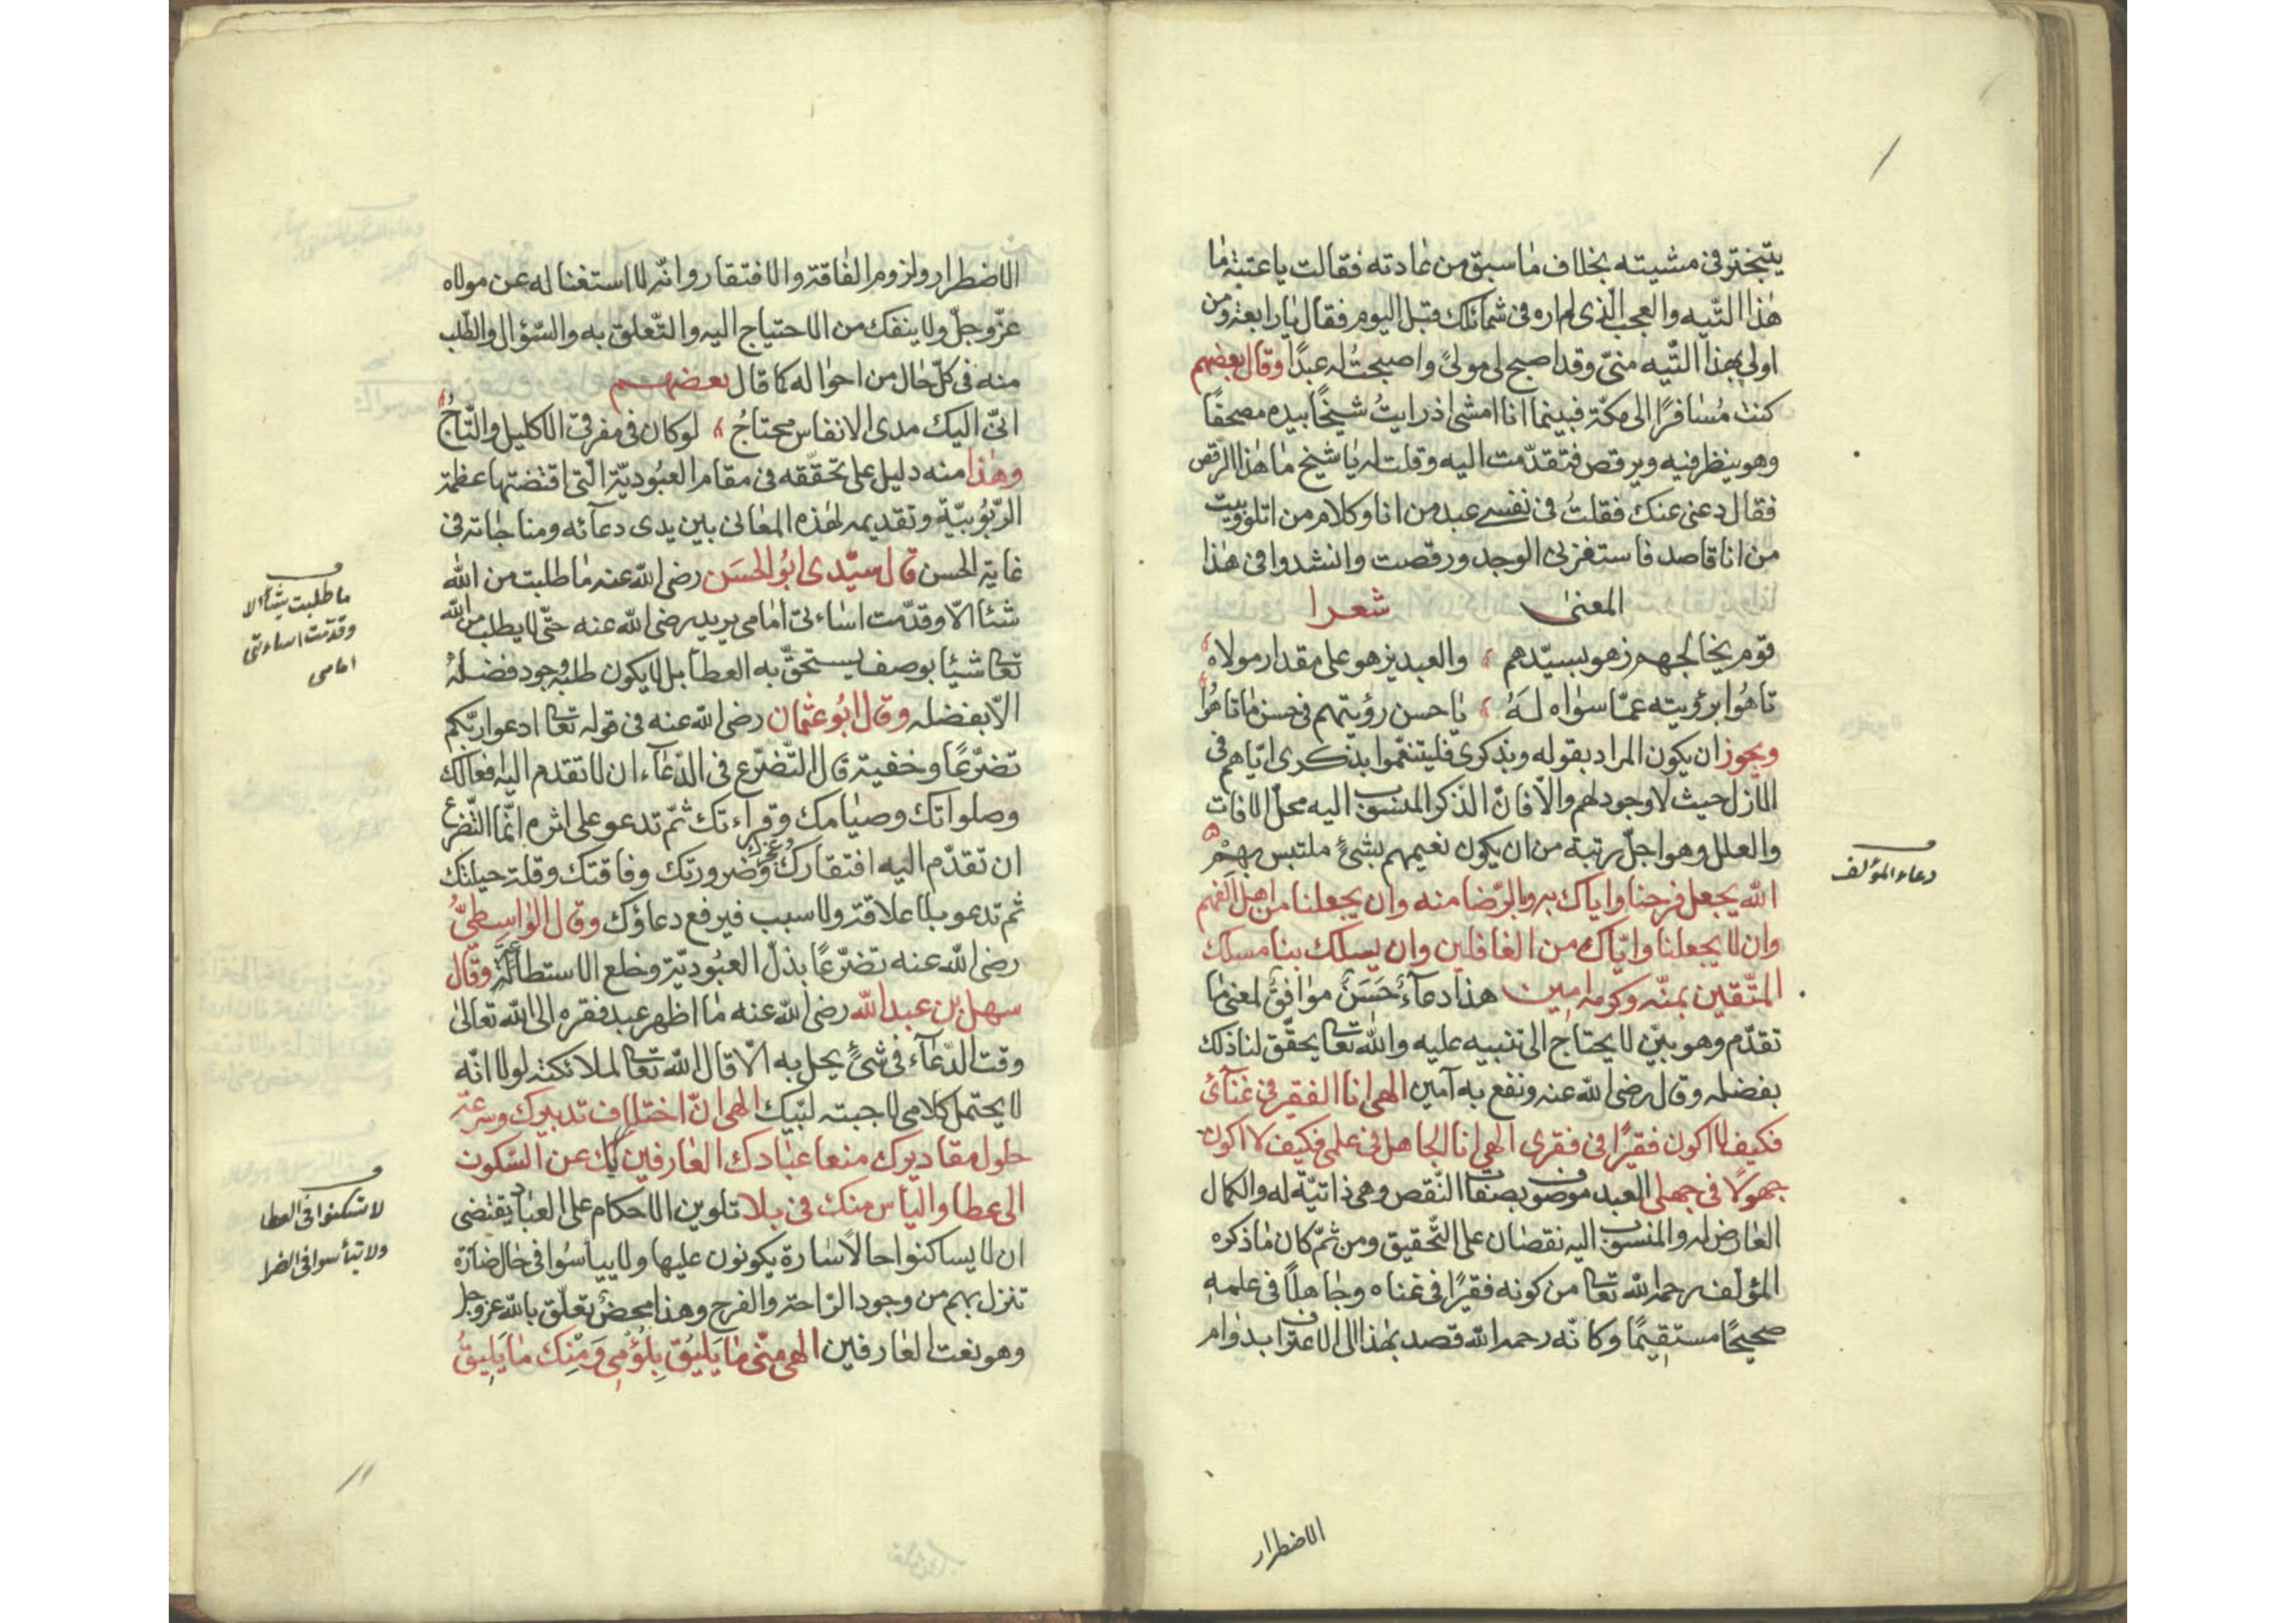 يتبختر فى مشيته بخلاف ما سبق من عادته فقالت يا عتبة ما
هذا التّيه والعجب الّذى لم اره فى شمائلك قبل اليوم فقال يا رابعة ومن
اولى بهذا التّيه منّى وقد اصبح لى مولىً واصبحتُ له عبدًا وقال بعضهم
كنت مُسافرًا الى مكّة فبينما انا امشى اذ رايتُ شيخًا بيده مصحفًا
وهو ينظر فيه ويرقص فتقدّمت اليه وقلت له يا شيخ ما هذا الرّقص
فقال دعنى عنك فقلتُ فى نفسى عبد من انا وكلام من اتلو وبيت
من انا قاصد فاستفزنى الوجد ورقصت وانشدوا فى هذا
المعنى شعرا
قوم يخالجهم زهو بسيّدهم ، والعبد يزهو على مقدار مولاه
تاهُوا برؤيته عمّا سواه لَهُ ، يا حسن رؤيتهم فى حسن ما تاهُوا
ويجوز ان يكون المراد بقوله وبذكرى فليتنعّموا بذكرى ايّاهم فى
الازل حيث لا وجود لهم والّا فانّ الذّكر المنسوب اليه محلّ الافات
والعلل وهو اجلّ رتبة من ان يكون نعيمهم بشئ ملتبس بهم
الله يجعل فرحنا واياك به وبالرّضا منه وان يجعلنا من اهل الفهم
وان لا يجعلنا وايّاك من الغافلين وان يسلك بنا مسلك
المتّقين بمنّه وكرمه امين هذا دعآءٌ حَسَنٌ موافقٌ لمعنى ما
تقدّم وهو بيّن لا يحتاج الى تنبيه عليه والله تعا يحقّق لنا ذلك
بفضله وقال رضى الله عنه ونفع به آمين الهى انا الفقير فى غنآئ
فكيف لا اكون فقيرًا فى فقرى الهى انا الجاهل فى علمى فكيف لا اكون
جهولًا فى جهلى العبد موصوف بصفات النّقص وهى ذاتيّة له والكمال
العارض له والمنسوب اليه نقصان على التّحقيق ومن ثمّ كان ما ذكره
المؤلّف رحمه الله تعا من كونه فقيرًا فى غناه وجاهلًا فى علمه
صحيحًا مستقيمًا وكانّه رحمه الله قصد بهذا الى الاعتراف بدوام
دعاء المؤلف
الاضطرار
الاضطرار ولزوم الفاقة والافتقار وانّه لا استغنا له عن مولاه
عزّ وجلّ ولا ينفك من الاحتياج اليه والتّعلق به والسّؤال والطّلب
منه فى كلّ حال من احواله كما قال بعضهم
انّى اليك مدى الانفاس محتاجُ ، لو كان فى مفرقى الاكليل والتّاجُ
وهذا منه دليل على تحقّقه فى مقام العبُوديّة الّتى اقتضتها عظمة
الرّبُوبيّة وتقديمه لهذه المعانى بين يدى دعآئه ومناجاته فى
غاية الحسن قال سيّدى ابُو الحسَن رضى الله عنه ما طلبت من الله
شئا الّا وقدّمت اساءتى امامى يريد رضى الله عنه حتّى لا يطلب من الله
تعا شيئا بوصف يستحقّ به العطا بل لا يكون طلبه وجود فضله
الّا بفضله وقال ابُو عثمان رضى الله عنه فى قوله تعا ادعوا ربّكم
تضرّعًا وخفية قال التّضرّع فى الدّعآء ان لا تقدم اليه افعالك
وصلواتك وصيامك وقراءتك ثمّ تدعو على اثره انّما التّضرع
ان تقدّم اليه افتقارك وعجزك وضرورتك وفاقتك وقلة حيلتك
ثم تدعو بلا علاقة ولا سبب فيرفع دعاؤك وقال الواسطىّ
رضى الله عنه تضرّعًا بذلّ العبُوديّة وخلع الاستطالة وقال
سهل بن عبد الله رضى الله عنه ما اظهر عبد فقره الى الله تعالى
وقت الدّعآء فى شئٍ يحل به الّا قال الله تعا لملائكته لولا انّه
لا يحتمل كلامى لاجبته لبّيك الهى انّ اختلاف تدبيرك وسرعة
حلول مقاديرك منعا عبادك العارفين بك عن السّكون
الى عطا والياس منك فى بلا تلوين الاحكام على العباد يقتضى
ان لا يساكنوا حالًا سارة يكونون عليها ولا ييأسُوا فى حال ضارّة
تنزل بهم من وجود الرّاحة والفرج وهذا محض تعلّق بالله عزوجل
وهو نعت العارفين الهى منّى ما يَلِيقُ بِلُؤمِى وَمِنْكَ ما يَلِيقُ
ما طلبت شيئا الا
وقدّمت اساءتى
امامى
لا تسكنوا فى العطا
ولا تيأسوا فى الضرا